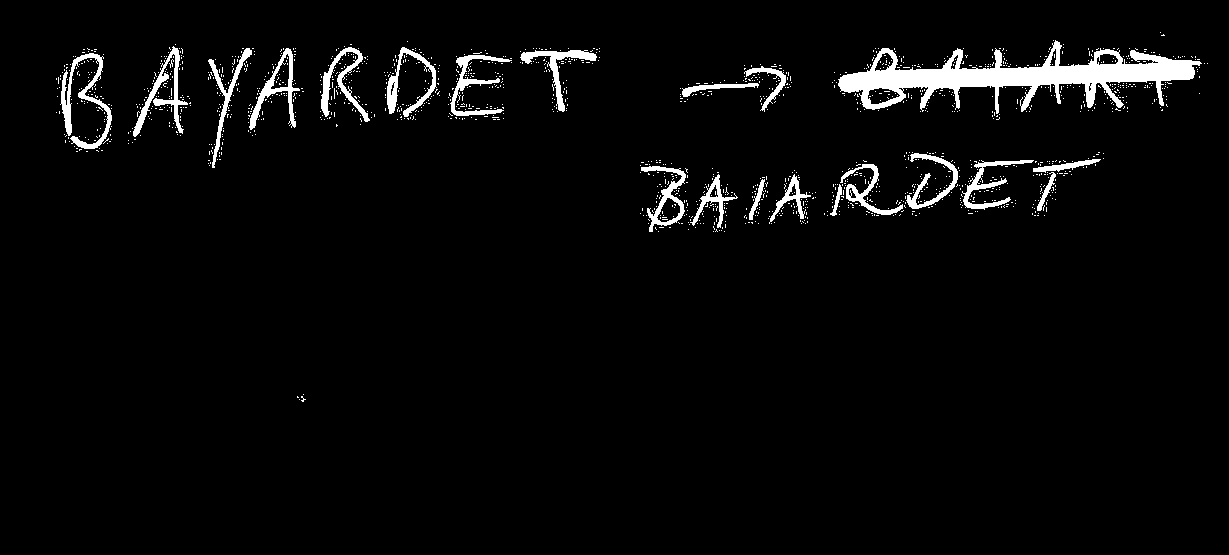 BAYARDET → BAIART
BAIARDET